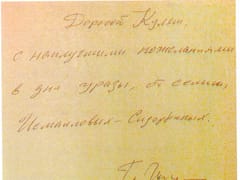 Дорогой Куляш.
с наилучшими пожеланиями
в дни уразы, от семьи
Исмаиловых - Сидоркиных.